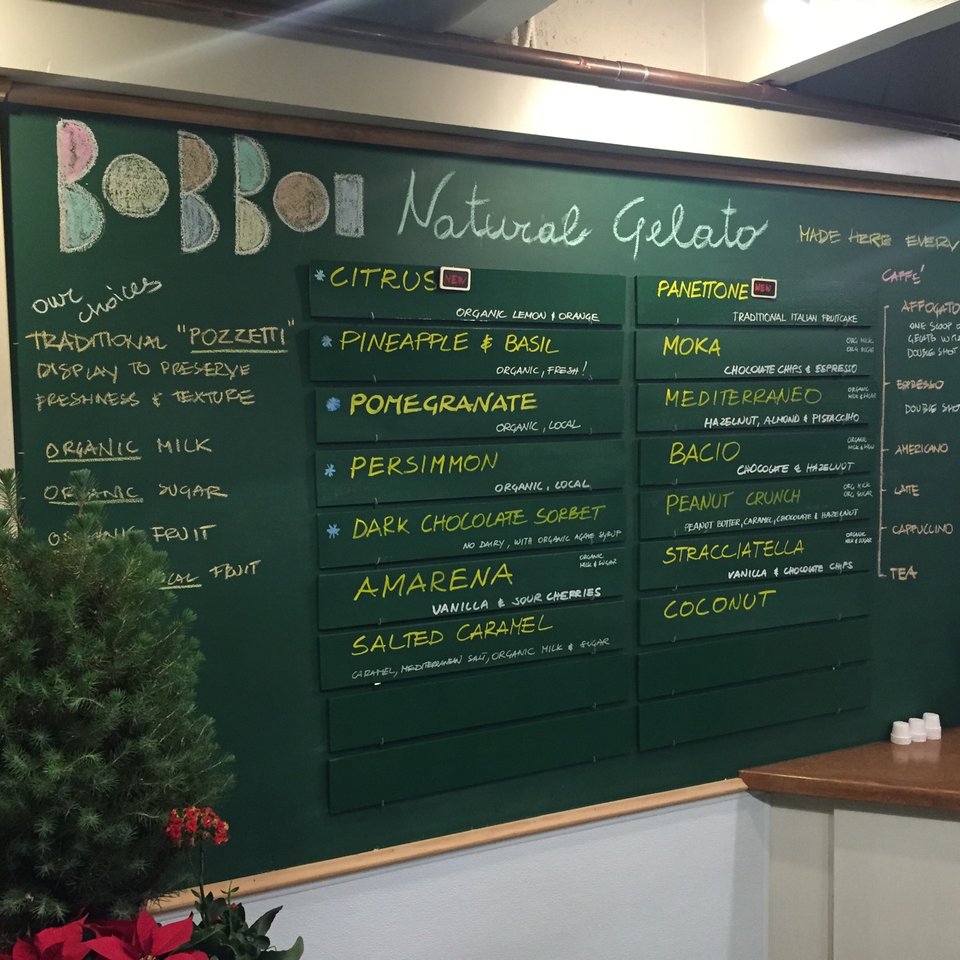 BOBBOM Natural Gelato
MADE HERE EVERY
our choices
TRADITIONAL "POZZETTI"
DISPLAY TO PRESERVE
FRESHNESS & TEXTURE
ORGANIC MILK
ORGANIC SUGAR
FRUIT
FRUIT
*CITRUS NEW
ORGANIC LEMON & ORANGE
*PINEAPPLE & BASIL
ORGANIC, FRESH!
*POMEGRANATE
ORGANIC, LOCAL
*PERSIMMON
ORGANIC, LOCAL
*DARK CHOCOLATE SORBET
NO DAIRY, WITH ORGANIC AGAVE SYRUP
AMARENA
ORGANIC
MILK & SUGAR
VANILLA & SOUR CHERRIES
SALTED CARAMEL
CARAMEL, MEDITERRANEAN SALT, ORGANIC MILK & SUGAR
PANETTONE NEW
TRADITIONAL ITALIAN FRUITCAKE
MOKA
ORG MILK
CHOCOLATE CHIPS & ESPRESSO
MEDITERRANEO
ORGANIC
MILK & SUGAR
HAZELNUT, ALMOND & PISTACCHIO
BACIO
ORGANIC
CHOCOLATE & HAZELNUT
PEANUT CRUNCH
ORG MILK
ORG SUGAR
PEANUT BUTTER, CARAMEL, CHOCOLATE & HAZELNUT
STRACCIATELLA
ORGANIC
MILK & SUGAR
VANILLA & CHOCOLATE CHIPS
COCONUT
CAFFE'
AFFOGATO
ONE SCOOP
GELATO
DOUBLE SHOT
ESPRESSO
DOUBLE
AMERICANO
LATE
CAPPUCCINO
TEA